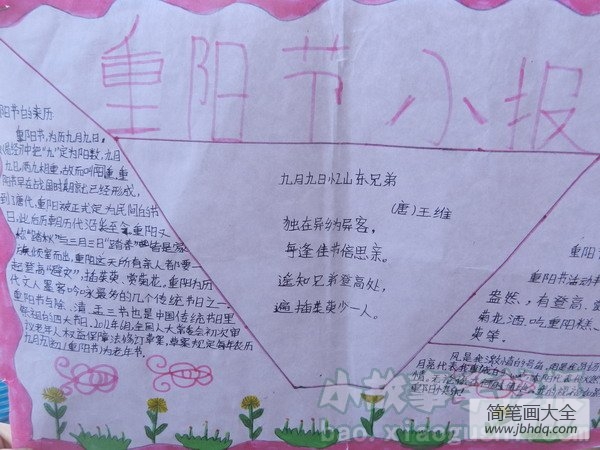 重阳节 小报
阳节的来历
重阳节,为历九月九日。
易经》中把"九"定为阳数,九月
九日,两九相重,故而叫重阳,重
阳节早在战国时期就已经形成,
到了唐代,重阳被正式定为民间的节
日,此后历朝历代沿袭至今重阳又
称"踏秋"与三月三日"踏春"皆是家
族倾室而出,重阳这天所有亲人都要一
起登高"避灾",插茱萸、赏菊花。重阳
代文人墨客吟咏最多的几个传统节日之一
重阳节与除、清、盂三节也是中国传统节日里
祭祖的四大节日。2012年
议老年人权益保障法修订草案,草案规定每年农历
九月初九(重阳节)为老年节。
九月九日忆山东兄弟
(唐)王维
独在异乡为异客,
每逢佳节倍思亲。
遥知兄弟登高处,
遍插茱萸少一人。
重阳节
重阳节活动
盎然,有登高、
菊花酒、吃重阳糕、
萸等。
小故事
bao.xiaogushi
简笔画大全
www.jbhdq.com